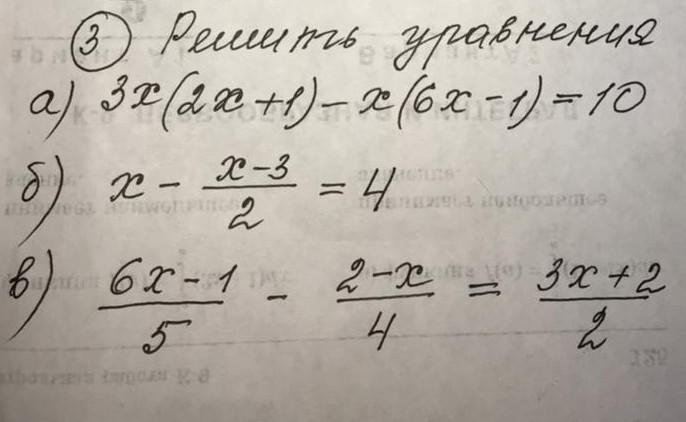 ③ Решить уравнения
а) 3x(2x+1) - x(6x-1) = 10
б) x - (x-3)/2 = 4
в) (6x-1)/5 - (2-x)/4 = (3x+2)/2